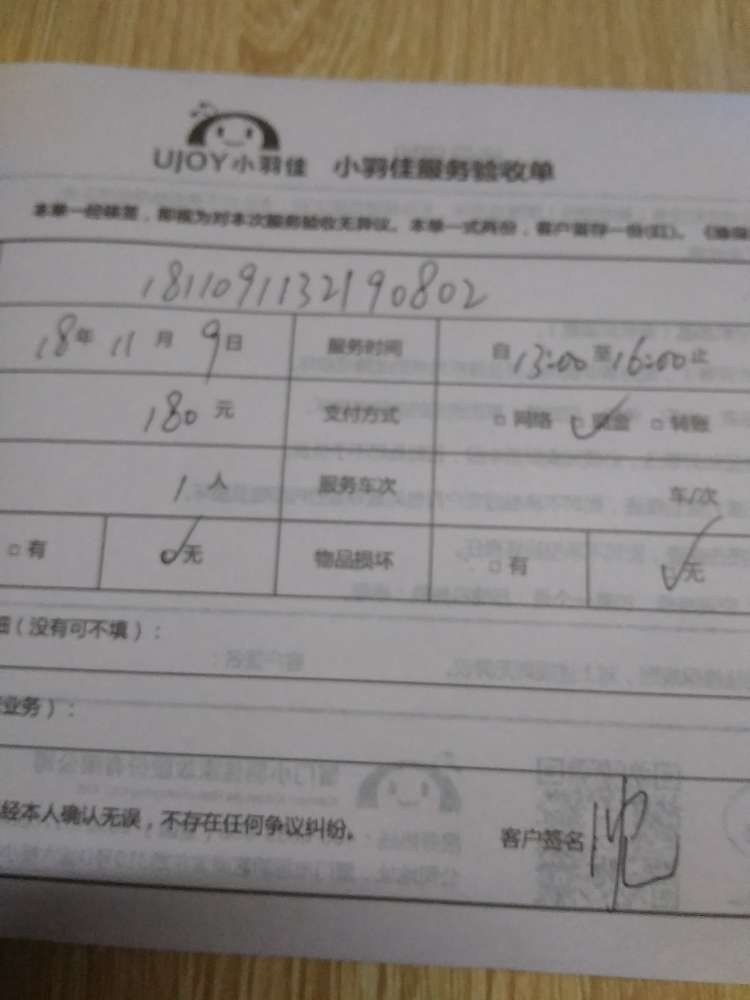 UJOY小羽佳 小羽佳服务验收单
本单一经核签，即视为对本次服务验收无异议。本单一式两份，客户留存一份(红)。
1811091132190802
18年 11月 9日 服务时间 自13:00至16:00止
180元 支付方式 □网络 □现金 □转账
1人 服务车次 车/次
□有 □无 物品损坏 □有 □无
（没有可不填）：
业务）：
经本人确认无误，不存在任何争议纠纷。 客户签名